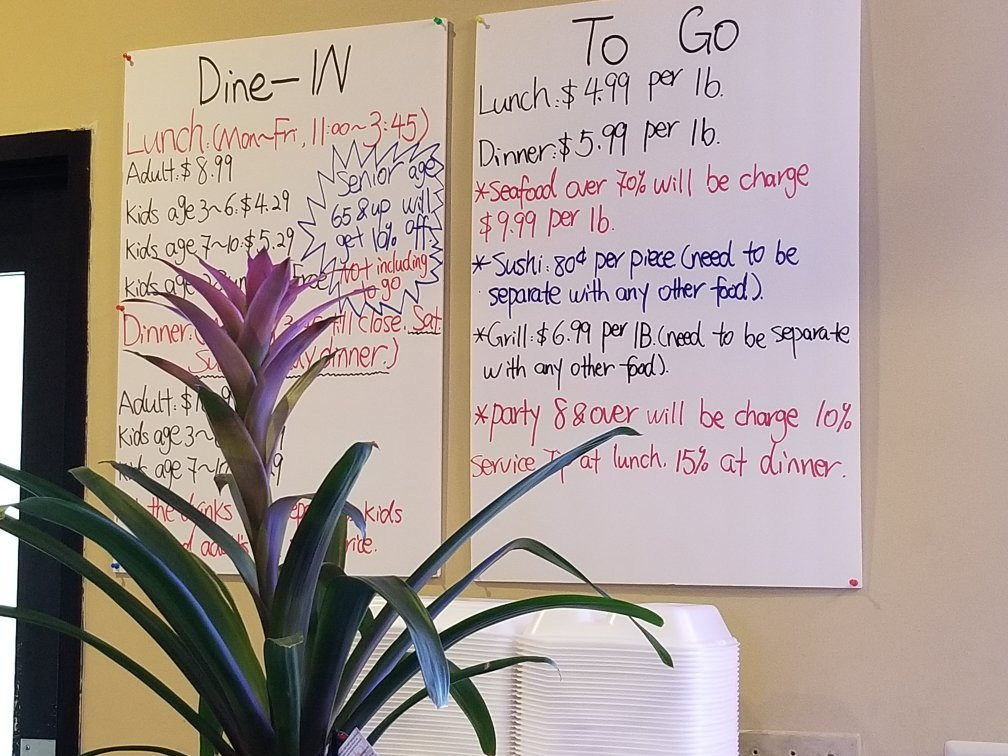 Dine-IN
Lunch:(Mon~Fri, 11:00~3:45)
Adult:$8.99
Kids age 3~6:$4.29
Kids age 7~10:$5.29
Kids age
Senior age
65 & up will
get 10% off.
Not including
to go
Dinner: close. Sat
dinner.)
Adult:$
Kids age 3~
Kids age 7~10
the drinks kids
To Go
Lunch:$4.99 per lb.
Dinner:$5.99 per lb.
*Seafood over 70% will be charge
$9.99 per lb.
*Sushi:80¢ per piece (need to be
separate with any other food).
*Grill:$6.99 per lB.(need to be separate
with any other food).
*party 8&over will be charge 10%
service at lunch. 15% at dinner.